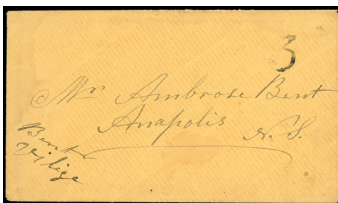 3
Mr Ambrose Bent
Anapolis N.S.
Bent
Vilige